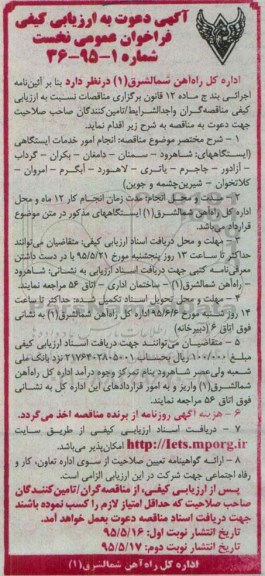 آگهی دعوت به ارزیابی کیفی
فراخوان عمومی نخست
شماره ۱-۹۵-۳۶
اداره کل راه‌آهن شمالشرق(۱) درنظر دارد بنا بر آئین‌نامه
اجرائی بند ج ماده ۱۲ قانون برگزاری مناقصات نسبت به ارزیابی
کیفی مناقصه‌گران واجدالشرایط/تامین‌کنندگان صاحب صلاحیت
جهت دعوت به مناقصه به شرح زیر اقدام نماید.
۱ – شرح مختصر موضوع مناقصه: انجام امور خدمات ایستگاهی
(ایستگاههای: شاهرود – سمنان – دامغان – بکران – گرداب
– آزادور – جاجرم – یاتری – لاهورد – آبگرم – امروان –
کلاتخوان – شیرین‌چشمه و جوین)
۲ – مدت و محل انجام: مدت زمان انجام کار ۱۲ ماه و محل
اداره کل راه‌آهن شمالشرق(۱) ایستگاههای مذکور در متن موضوع
قرارداد می‌باشد.
۳ – مهلت و محل دریافت اسناد ارزیابی کیفی: متقاضیان می‌توانند
حداکثر تا ساعت ۱۳ روز پنجشنبه مورخ ۹۵/۵/۲۱ با در دست داشتن
معرفی‌نامه کتبی جهت دریافت اسناد ارزیابی به نشانی: شاهرود
– راه‌آهن شمالشرق(۱) – ساختمان اداری – اتاق ۵۶ مراجعه نمایند.
۴ – مهلت و محل تحویل اسناد تکمیل شده: حداکثر تا ساعت
۱۴ روز شنبه مورخ ۹۵/۶/۶ اداره کل راه‌آهن شمالشرق(۱) به نشانی
فوق اتاق ۶ (دبیرخانه)
۵ – متقاضیان می‌توانند جهت دریافت اسناد ارزیابی کیفی
مبلغ ۱۰۰/۰۰۰ ریال بحساب ۲۱۷۶۴۰۲۸۰۵۰۰۱ نزد بانک ملی
شعبه ولی‌عصر شاهرود بنام تمرکز وجوه درآمد اداره کل راه‌آهن
شمالشرق(۱) واریز و به امور قراردادهای این اداره کل به نشانی
فوق اتاق ۵۶ مراجعه نمایند.
۶ – هزینه آگهی روزنامه از برنده مناقصه اخذ می‌گردد.
۷ – دریافت اسناد ارزیابی کیفی از طریق سایت
http://Iets.mporg.ir امکان‌پذیر می‌باشد.
۸ – ارائه گواهینامه تعیین صلاحیت از سوی اداره تعاون، کار و
رفاه اجتماعی جهت شرکت در این ارزیابی الزامی است.
پس از ارزیابی کیفی، از مناقصه‌گران/تامین‌کنندگان
صاحب صلاحیت که حداقل امتیاز لازم را کسب نموده باشند
جهت دریافت اسناد مناقصه دعوت بعمل خواهد آمد.
تاریخ انتشار نوبت اول: ۹۵/۵/۱۶
تاریخ انتشار نوبت دوم: ۹۵/۵/۱۷
اداره کل راه آهن شمالشرق(۱)